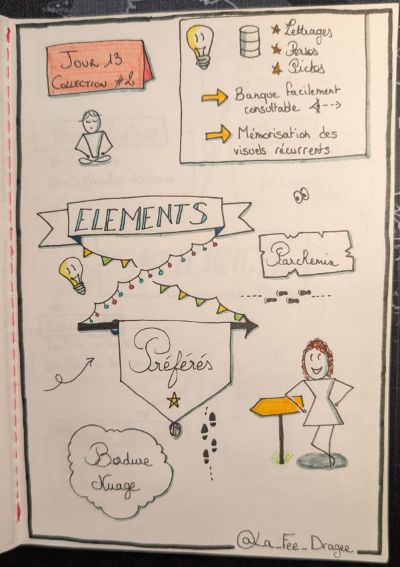 JOUR 13
COLLECTION #2
Lettrages
Persos
Pictos
Banque facilement
consultable
Mémorisation des
visuels récurrents
ELEMENTS
Parchemin
Préférés
Bordure
Nuage
@La_Fée_Dragée